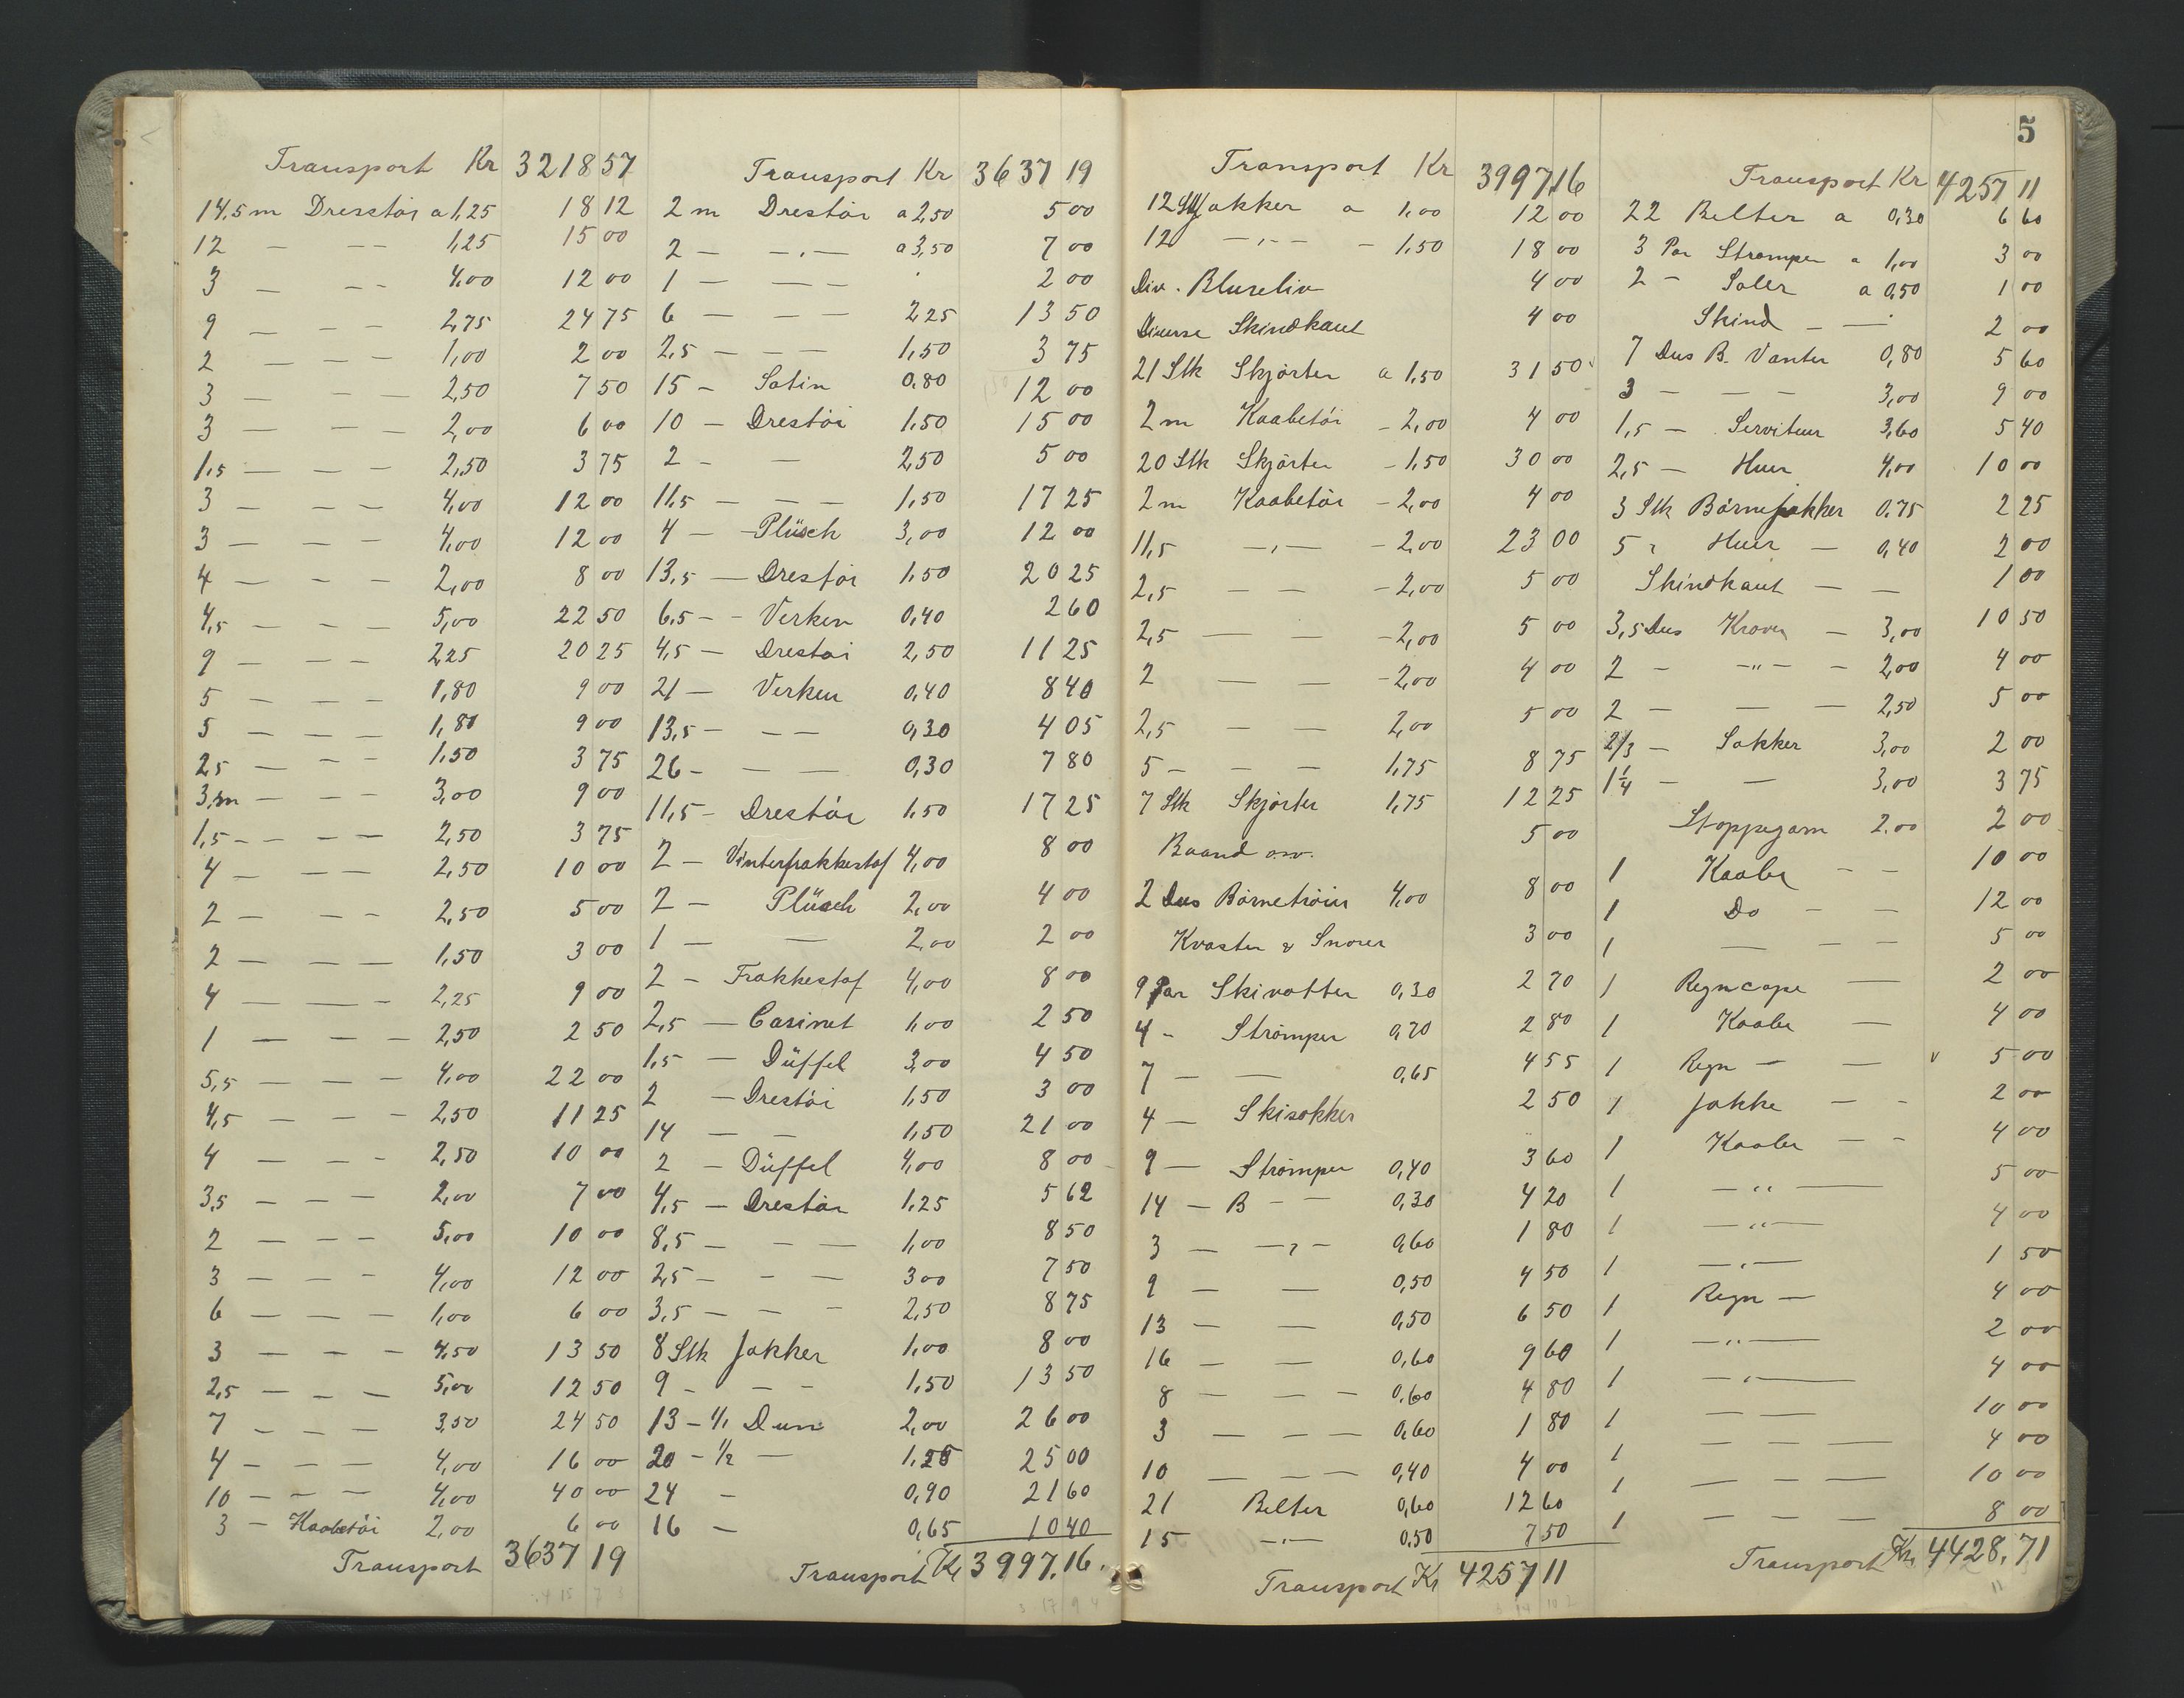 5
Transport Kr 3218 57
14,5 m Dresstöi a 1,25 18 12
12 — — 1,25 15 00
3 — — 4,00 12 00
9 — — — 2,75 24 75
2 — — — 1,00 2 00
3 — — — 2,50 7 50
3 — — — 2,00 6 00
1,5 — — — 2,50 3 75
3 — — — 4,00 12 00
3 — — — 4,00 12 00
4 — — — 2,00 8 00
4,5 — — — 5,00 22 50
9 — — — 2,25 20 25
5 — — — 1,80 9 00
5 — — — 1,80 9 00
2,5 — — — 1,50 3 75
3,m — — — 3,00 9 00
1,5 — — — 2,50 3 75
4 — — — 2,50 10 00
2 — — — 2,50 5 00
2 — — — 1,50 3 00
4 — — — 2,25 9 00
1 — — — 2,50 2 50
5,5 — — — 4,00 22 00
4,5 — — — 2,50 11 25
4 — — — 2,50 10 00
3,5 — — — 2,00 7 00
2 — — — 5,00 10 00
3 — — — 4,00 12 00
6 — — — 1,00 6 00
3 — — — 4,50 13 50
2,5 — — — 5,00 12 50
7 — — — 3,50 24 50
4 — — — 4,00 16 00
10 — — — 4,00 40 00
3 — Kaabetöi 2,00 6 00
Transport 3637 19
Transport Kr 3637 19
2 m Drestöi a 2,50 5 00
2 — —,— a 3,50 7 00
1 — — — 2 00
6 — — — 2,25 13 50
2,5 — — — 1,50 3 75
15 — Satin 0,80 12 00
10 — Drestöi 1,50 15 00
2 — — 2,50 5 00
11,5 — — — 1,50 17 25
4 — Plüsch 3,00 12 00
13,5 — Drestöi 1,50 20 25
6,5 — Verken 0,40 2 60
4,5 — Drestöi 2,50 11 25
21 — Verken 0,40 8 40
13,5 — — — 0,30 4 05
26 — — — 0,30 7 80
11,5 — Drestöi 1,50 17 25
2 — Vinterfrakkestof 4,00 8 00
2 — Plüsch 2,00 4 00
1 — — 2,00 2 00
2 — Frakkestof 4,00 8 00
2,5 — Casinet 1,00 2 50
1,5 — Düffel 3,00 4 50
2 — Drestöi 1,50 3 00
14 — — 1,50 21 00
2 — Düffel 4,00 8 00
4,5 — Drestöi 1,25 5 62
8,5 — — — 1,00 8 50
2,5 — — — 3 00 7 50
3,5 — — — 2,50 8 75
8 Stk Jakker 1,00 8 00
9 — — — 1,50 13 50
13 — 1/1 Dun 2,00 26 00
20 — 1/2 — 1,25 25 00
24 — 0,90 21 60
16 — 0,65 10 40
Transport Kr 3997,16.
Transport Kr 3997,16
12 Stk Jakker a 1,00 12 00
12 —,— — 1,50 18 00
Div. Bluseliv 4 00
Diverse Skindkant 4 00
21 Stk Skjörter a 1,50 31 50
2 m Kaabetöi — 2,00 4 00
20 Stk Skjörter — 1,50 30 00
2 m Kaabetöi — 2,00 4 00
11,5 —,— — 2,00 23 00
2,5 — — — 2,00 5 00
2,5 — — — 2,00 5 00
2 — — — 2,00 4 00
2,5 — — 2,00 5 00
5 — — — 1,75 8 75
7 Stk Skjörter 1,75 12 25
Baand osv. 5 00
2 Dus Börnetröier 4,00 8 00
Kvaster & Snorer 3 00
9 Par Skivotter 0,30 2 70
4 — Strömper 0,70 2 80
7 — — 0,65 4 55
4 — Skisokker 2 50
9 — Strömper 0,40 3 60
14 — B — — 0,30 4 20
3 — —,— 0,60 1 80
9 — — 0,50 4 50
13 — — 0,50 6 50
16 — — 0,60 9 60
8 — — — 0,60 4 80
3 — — — 0,60 1 80
10 — — — 0,40 4 00
21 Belter 0,60 12 60
15 —,— 0,50 7 50
Transport Kr 4257 11
Transport Kr 4257 11
22 Belter a 0,30 6 60
3 Par Strömper a 1,00 3 00
2 — Saler a 0,50 1 00
Skind — — 2 00
7 Dus B. Vanter 0,80 5 60
3 — — — 3,00 9 00
1,5 — Serviteur 3,60 5 40
2,5 — Huer 4,00 10 00
3 Stk Börnejakker 0,75 2 25
5 " Huer — 0,40 2 00
Skindkant — — 1 00
3,5 Dus Kraver — 3,00 10 50
2 — —"— — 2,00 4 00
2 — — — 2,50 5 00
2/3 — Sokker 3,00 2 00
1 1/4 — — 3,00 3 75
Stoppegarn 2.00 2 00
1 Kaabe — — 10 00
1 Do — — 12 00
1 — — — 5 00
1 Regncape — 2 00
1 Kaabe — 4 00
1 Regn — — 5 00
1 Jakke — — 2 00
1 Kaabe — — 4 00
1 —"— — 5 00
1 —"— 4 00
1 —,— 1 50
1 Regn — 4 00
1 —"— 2 00
1 —"— 4 00
1 — — 10 00
1 — — — 4 00
1 — — — 10 00
1 — — — 8 00
Transport Kr. 4428,71